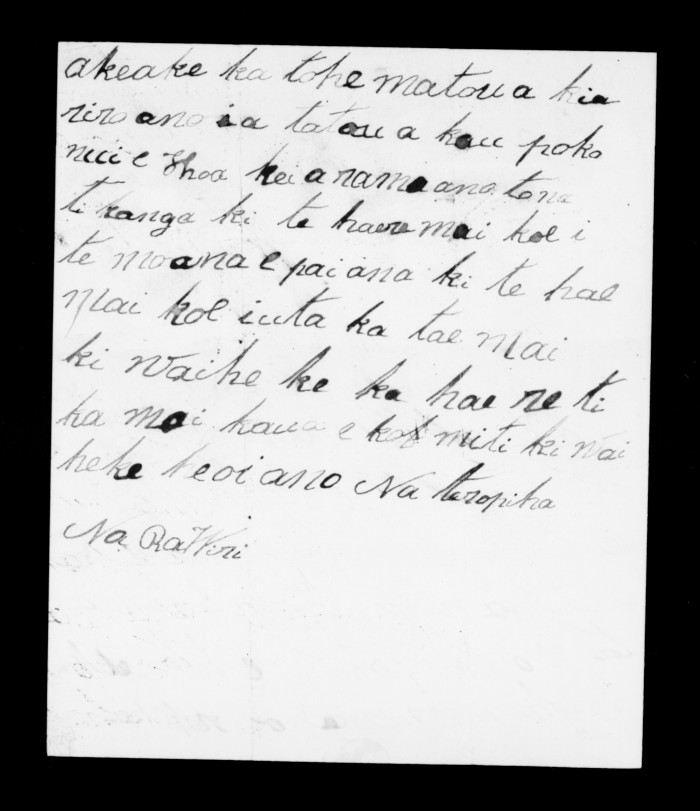 akeake ka tohe matou a kia
riro ano i a tatou a kau poko
nui e Hoa kei arama ano tona
ti kanga ki te haere mai koe i
te moana e pai ana ki te hae
Mai koe i uta ka tae Mai
ki Waihe ke ka hae re ti
ka mai kaua e koe miti ki Wai
heke heoi ano Na teropiha
Na RaWiri